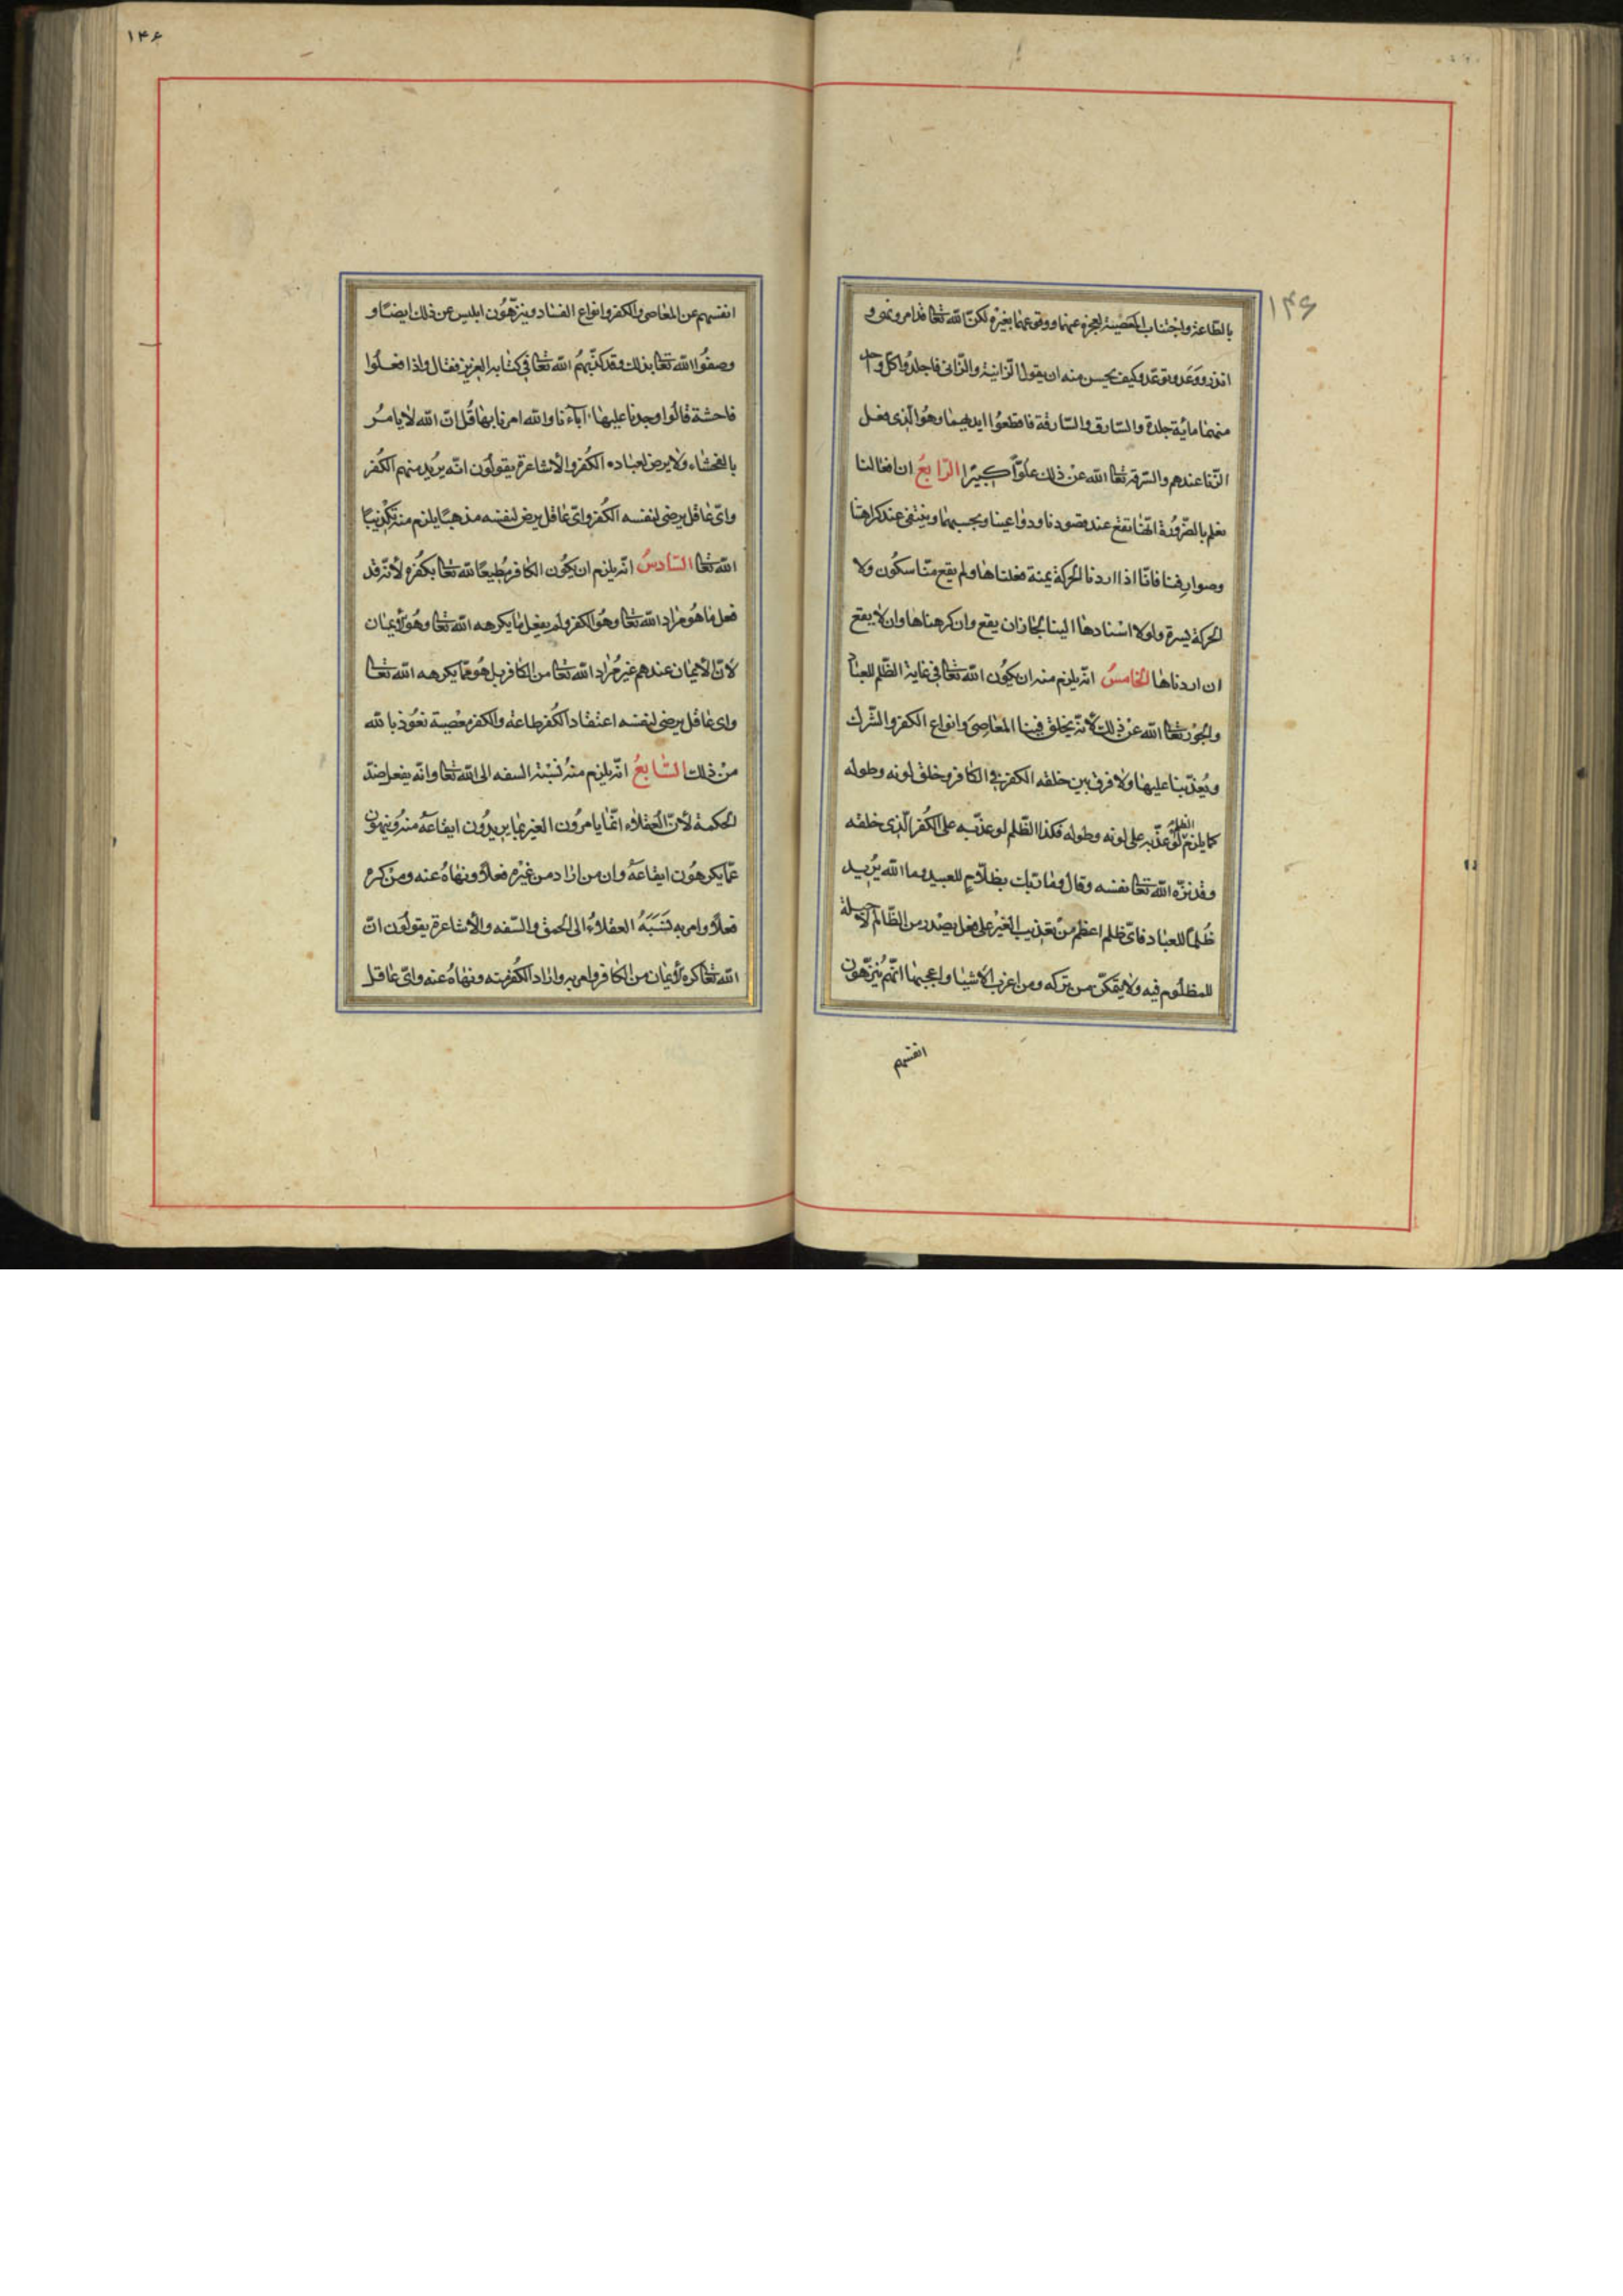 ۱۴۶
بالطاعة واجتناب المعصية لعجزه عنها ووقوعها بغيره لكن الله تعا قد امر ونهى و
انذر ووعد وتوعد وكيف يحسن منه ان يقول الزانية والزانى فاجلدوا كل واحد
منهما مائة جلدة والسارق والسارقة فاقطعوا ايديهما وهو الذى فعل
الزنا عندهم والسرقة تعا الله عن ذلك علوّاً كبيرًا الرّابعُ ان افعالنا
نعلم بالضرورة انها تقع عند قصودنا ودواعينا وبحسبهما وينتفى عند كراهتنا
وصوارفنا فانّا اذا اردنا الحركة يمنة فعلناها ولم يقع منّا سكون ولا
الحركة يسرة ولولا اسنادها الينا لجاز ان يقع وان كرهناها وان لا يقع
ان اردناها الخامسُ انّه يلزم منه ان يكون الله تعا فى غاية الظلم للعباد
والجور تعا الله عن ذلك لانّه يخلق فينا المعاصى وانواع الكفر والشرك
ويُعذّبنا عليها ولا فرق بين خلقه الكفر فى الكافر وخلق لونه وطوله
كما يلزم الظلم لو عذّبه على لونه وطوله فكذا الظّلم لو عذّبه على الكفر الّذى خلقه
وقد نزّه الله تعا نفسه وقال وما ربك بظلّامٍ للعبيد وما الله يُريد
ظُلمًا للعباد فاىّ ظلم اعظم من تعذيب الغير على فعل يصدر من الظّالم لا حيلة
للمظلوم فيه ولا يتمكّن من تركه ومن اغرب الاشيا واعجبها انّهم يُنزّهون
انفسهم
۱۴۶
انفسهم عن المعاصى والكفر وانواع الفساد وينزّهُون ابليس عن ذلك ايضًا و
وصفُوا الله تعا بذلك وقد كذّبهمُ الله تعا فى كتابه العزيز فقال واذا فعلُوا
فاحشة قالُوا وجدنا عليها آباءنا والله امرنا بها قُل انّ الله لا يامرُ
بالفحشاء ولا يرضى لعباده الكُفر والاشاعرة يقولُون انّه يُريد منهم الكُفر
واىّ عاقل يرضى لنفسه الكُفر واىّ عاقل يرضى لنفسه مذهبًا يلزم منه تكذيبًا
الله تعا السّادسُ انّه يلزم ان يكُون الكافر مُطيعًا لله تعا بكفره لانّه قد
فعل ما هُو مُراد الله تعا وهُو الكفر ولم يفعل ما يكرهه الله تعا وهُو الايمان
لانّ الايمان عندهم غير مُراد الله تعا من الكافر بل هُو ممّا يكرهه الله تعا
واى عاقل يرضى لنفسه اعتقاد الكُفر طاعة والكفر معْصية نعُوذ بالله
منْ ذلك السّابعُ انّه يلزم منهُ نسْبة السفه الى الله تعا وانّه يفعل ضدّ
الحكمة لانّ العُقلاء انّما يامرُون الغير بما يريدُون ايقاعهُ منهُ وينهون
عمّا يكرهُون ايقاعهُ وان من اراد من غيْره فعلًا ونهاهُ عنه ومن كره
فعلًا وامر به نَسَبَهُ العقلاءُ الى الحمق والسّفه والاشاعرة يقولُون انّ
الله تعا كره الايمان من الكافر وامر به واراد الكُفر منه ونهاهُ عنه واىّ عاقل